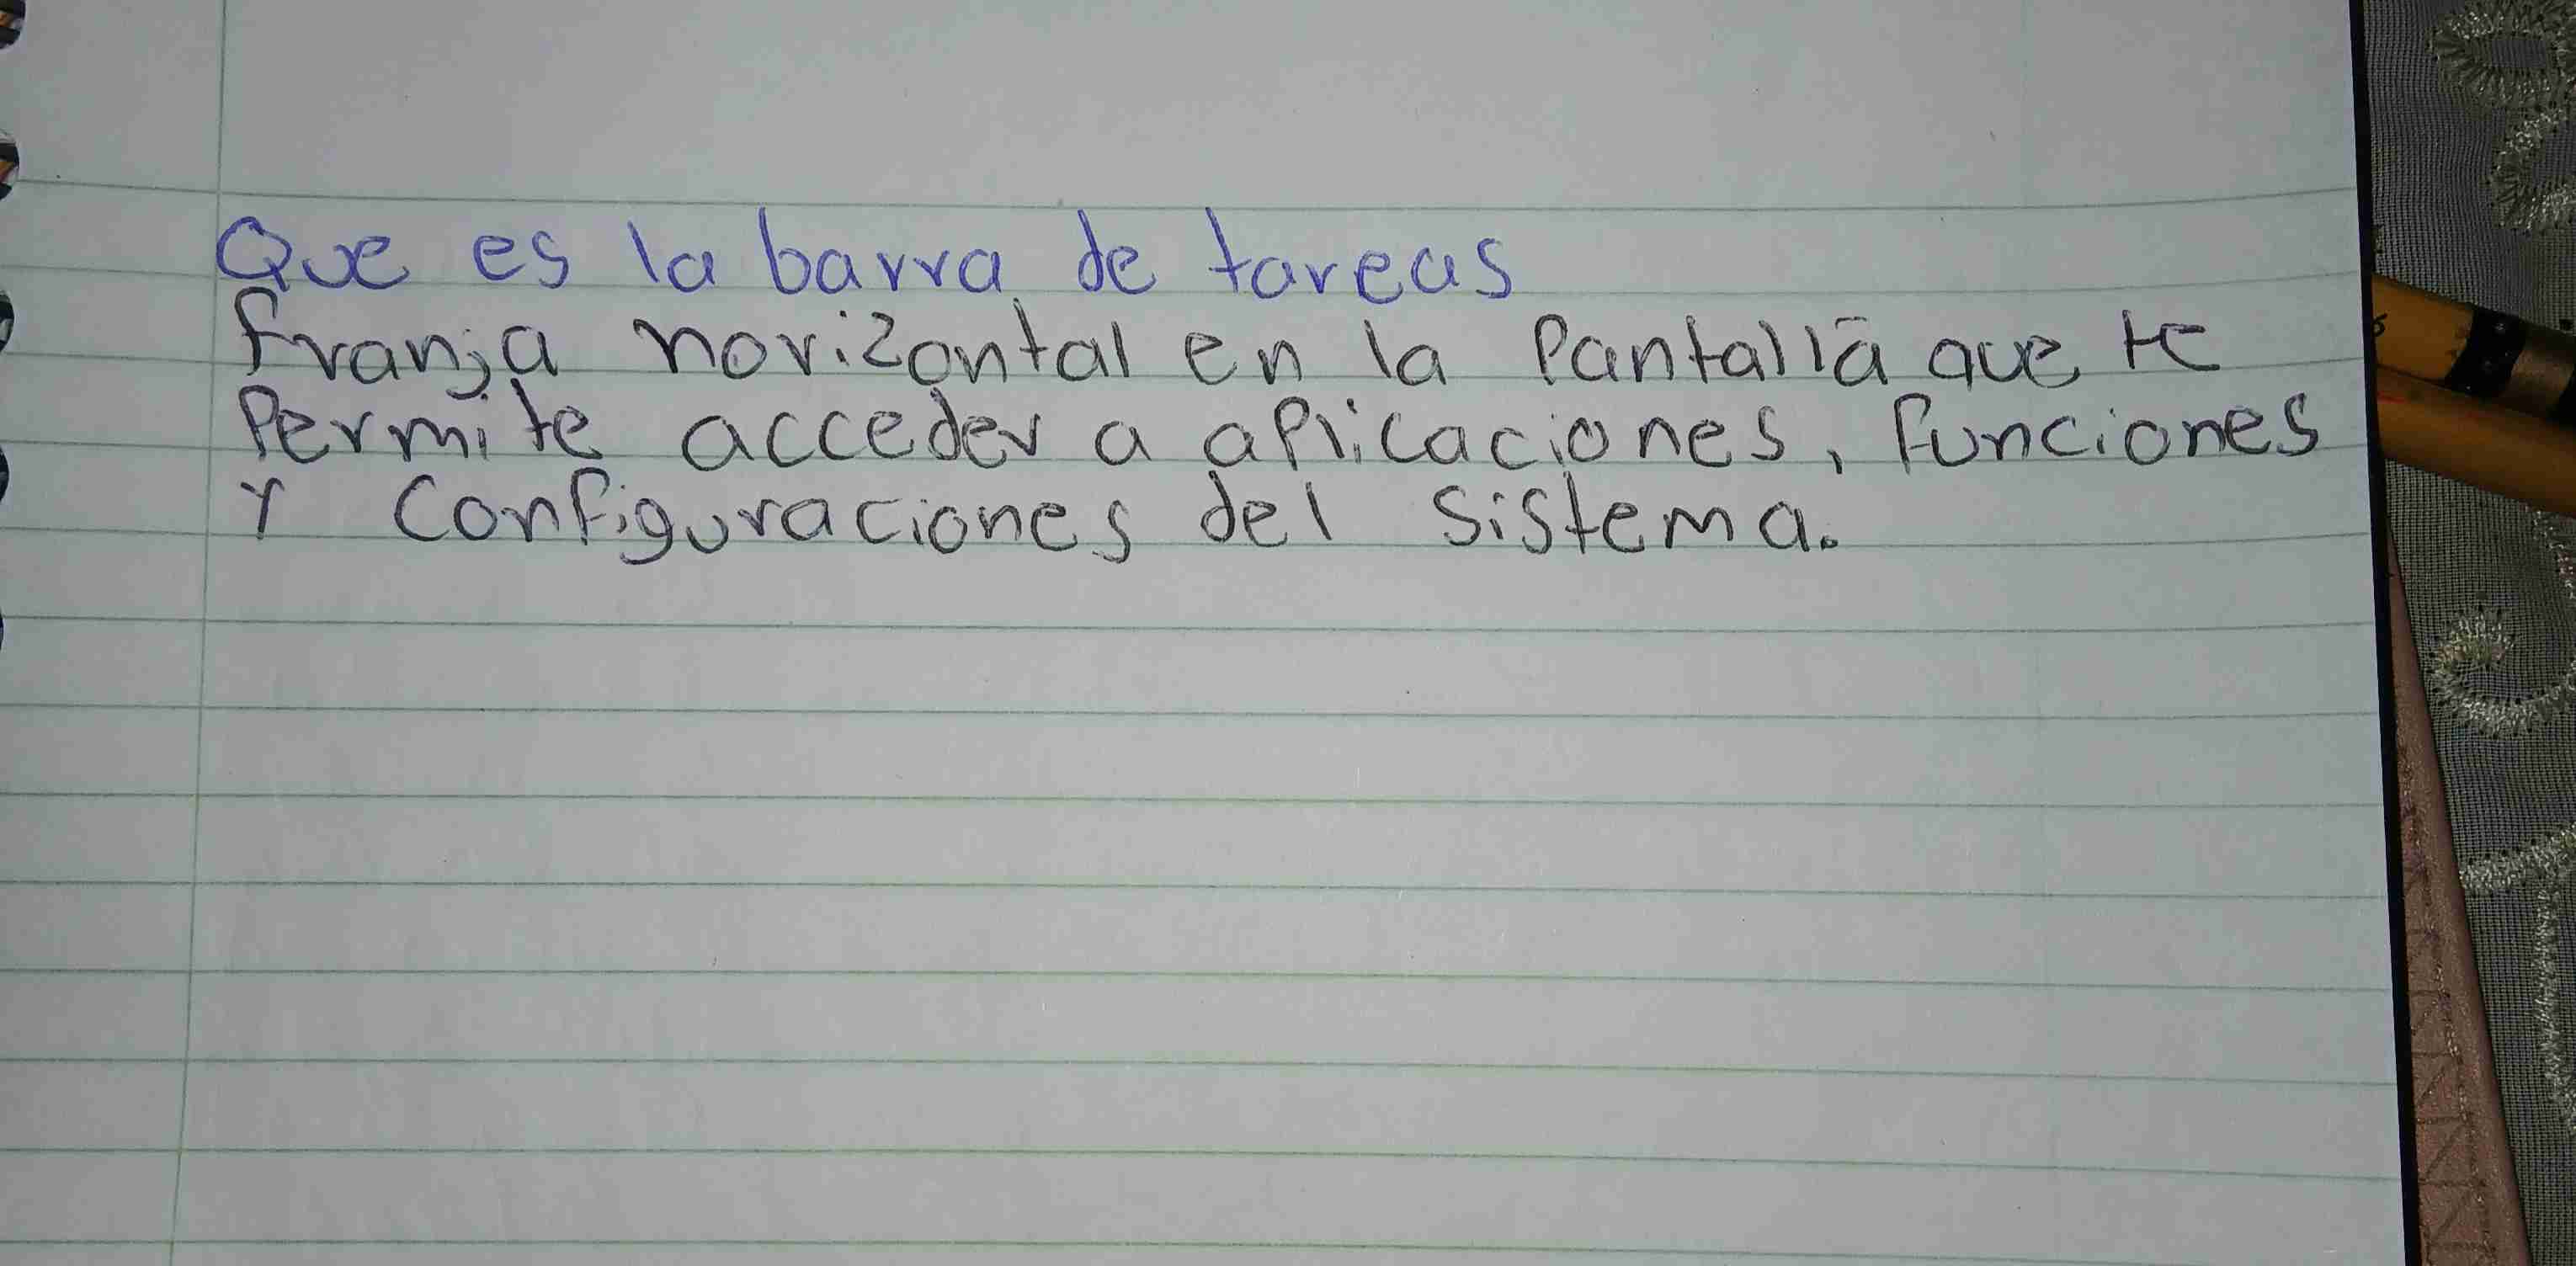 Que es la barra de tareas
franja horizontal en la Pantalla que te
Permite acceder a aplicaciones, funciones
Y Configuraciones del sistema.